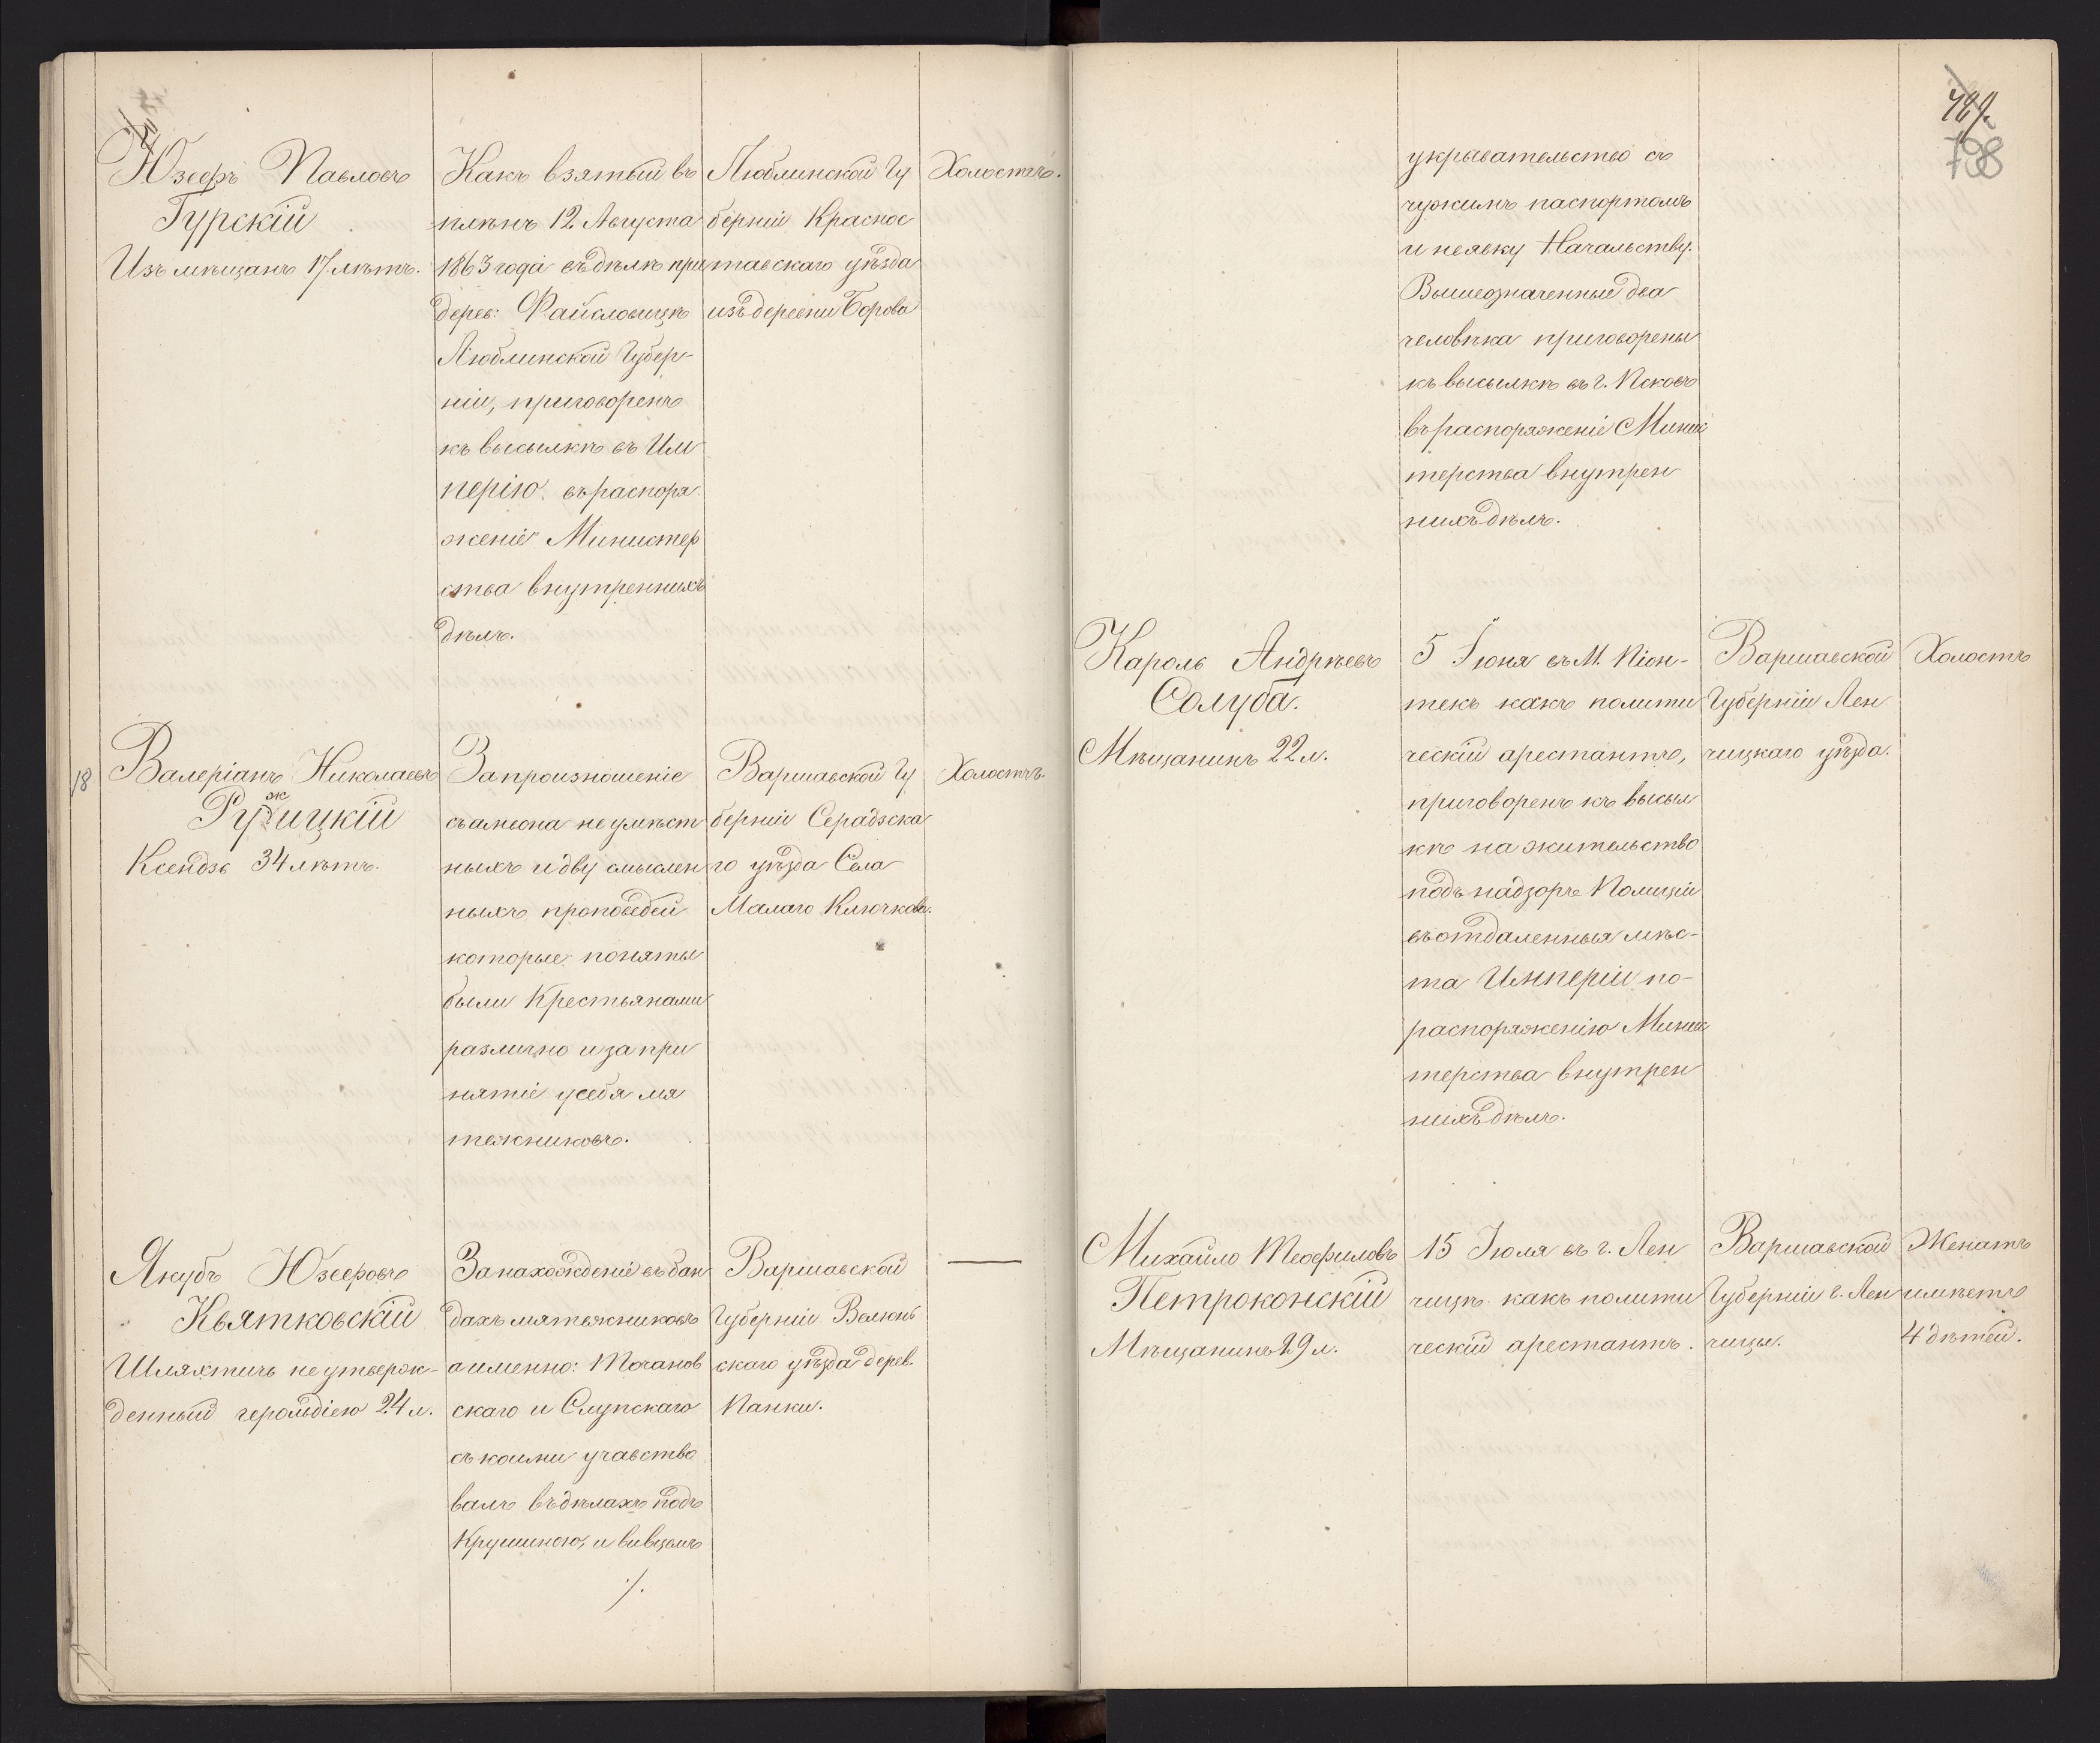 Юзефъ Павловъ
Гурскій
Изъ мѣщанъ 17 лѣтъ.
Какъ взятый въ
плѣнъ 12 Августа
1863 года въ дѣлѣ при
дерев: Файсловицѣ
Люблинской Губер-
ніи, приговоренъ
къ высылкѣ въ Им
перію въ распоря
женіе Министер
ства внутреннихъ
дѣлъ.
Люблинской Гу
берніи Краснос
тавскаго уѣзда
изъ деревни Борова
Холостъ.
18
Валеріанъ Николаевъ
Ружицкій
Ксендзъ 34 лѣтъ.
За произношеніе
съ амвона не умѣст
ныхъ и дву смыслен
ныхъ проповѣдей
которые поняты
были Крестьянами
различно и за при
нятіе у себя мя
тежниковъ.
Варшавской Гу
берніи Серадзска
го уѣзда Села
Малаго Ключкова.
Холостъ.
Якубъ Юзефовъ
Квятковскій
Шляхтичь не утверж-
денный герольдіею 24 л.
За нахожденіе въ бан
дахъ мятежниковъ
а именно: Точанов
скаго и Слупскаго
съ коими учавство
валъ въ дѣлахъ подъ
Крушиною, и
./.
Варшавской
Губерніи Велюнь
скаго уѣзда дерев.
Панки.
—
489.
738
укрывательство съ
чужимъ паспортомъ
и неявку Начальству.
Вышеозначенные два
человѣка приговорены
къ высылкѣ въ г. Псковъ
въ распоряженіе Минис
терства внутрен
нихъ дѣлъ.
Кароль Андрѣевъ
Солуба.
Мѣщанинъ 22 л.
5 Іюня въ М. Піон-
текъ какъ полити
ческій арестантъ,
приговоренъ къ высыл
кѣ на жительство
подъ надзоръ Полиціи
въ отдаленныя мѣс-
та Имперіи по-
распоряженію Минис
терства внутрен
нихъ дѣлъ.
Варшавской
Губерніи Лен
чицкаго уѣзда.
Холостъ
Михайло Теофиловъ
Петроконскій
Мѣщанинъ 29 л.
15 Іюля въ г. Лен
чицѣ какъ полити
ческій арестантъ.
Варшавской
Губерніи г. Лен
чицы.
Женатъ
имѣетъ
4 дѣтей.